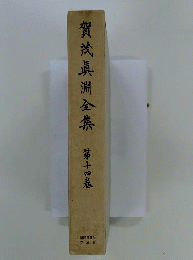 賀茂真淵全集
第十四巻